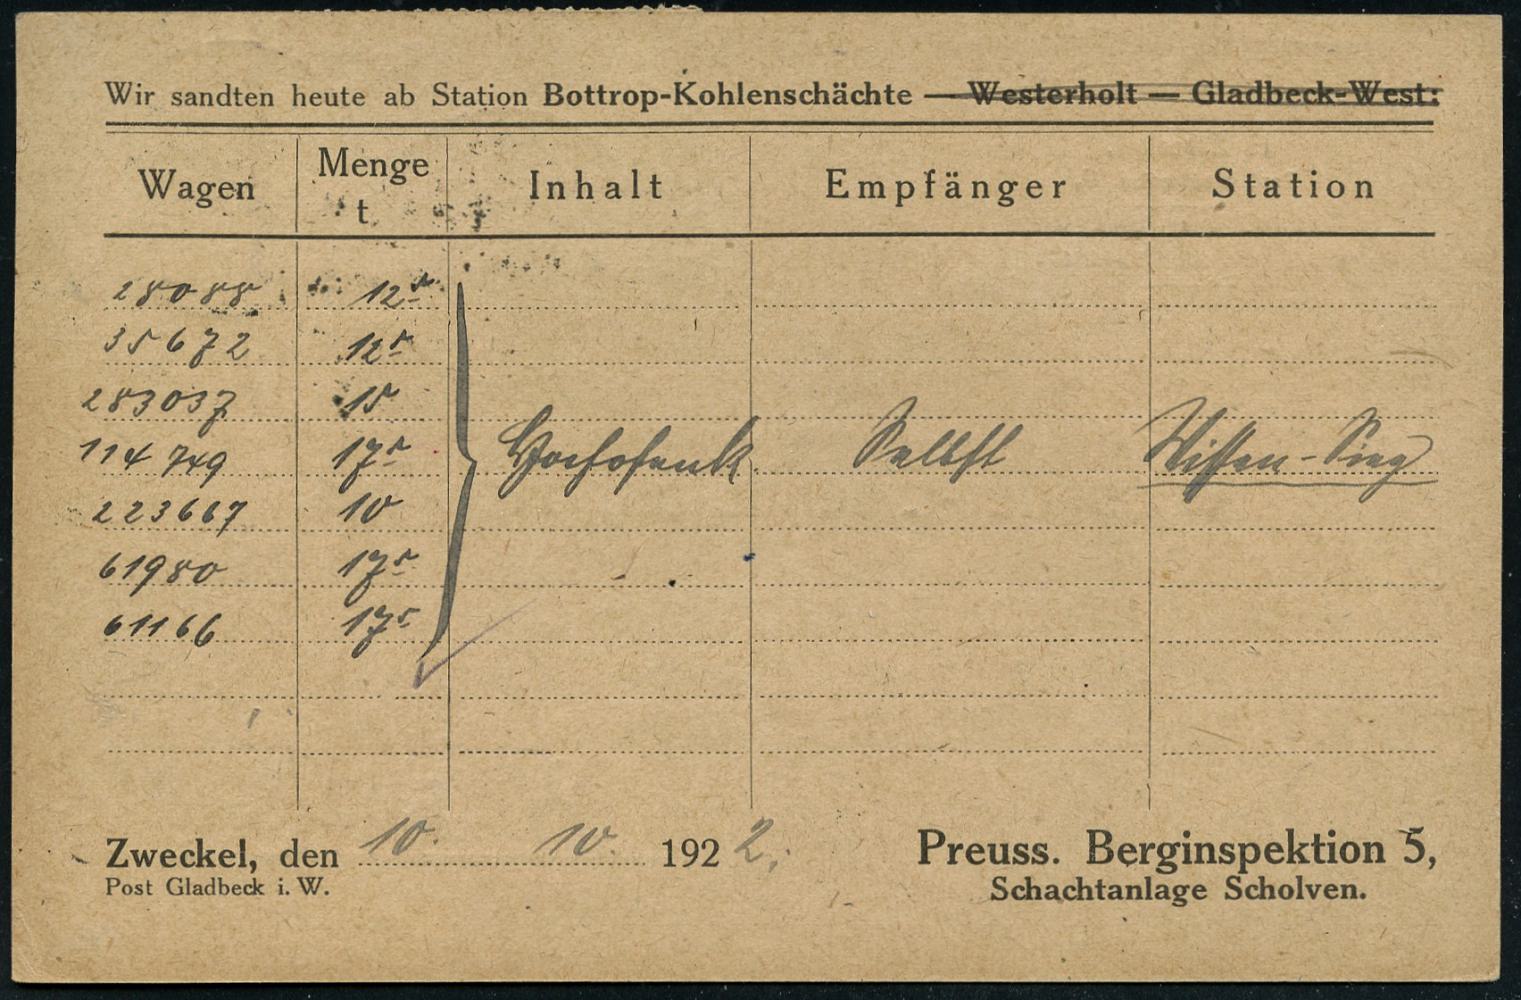 Wir sandten heute ab Station Bottrop-Kohlenschächte — Westerholt — Gladbeck-West:
Wagen Menge t Inhalt Empfänger Station
28088 12⁵
35672 12⁵
283037 15
114749 17⁵ Hochofenk Selbst Wissen-Sieg
223667 10
61980 17⁵
61166 17⁵
Zweckel, den 10. 10. 1922. Preuss. Berginspektion 5,
Post Gladbeck i. W. Schachtanlage Scholven.